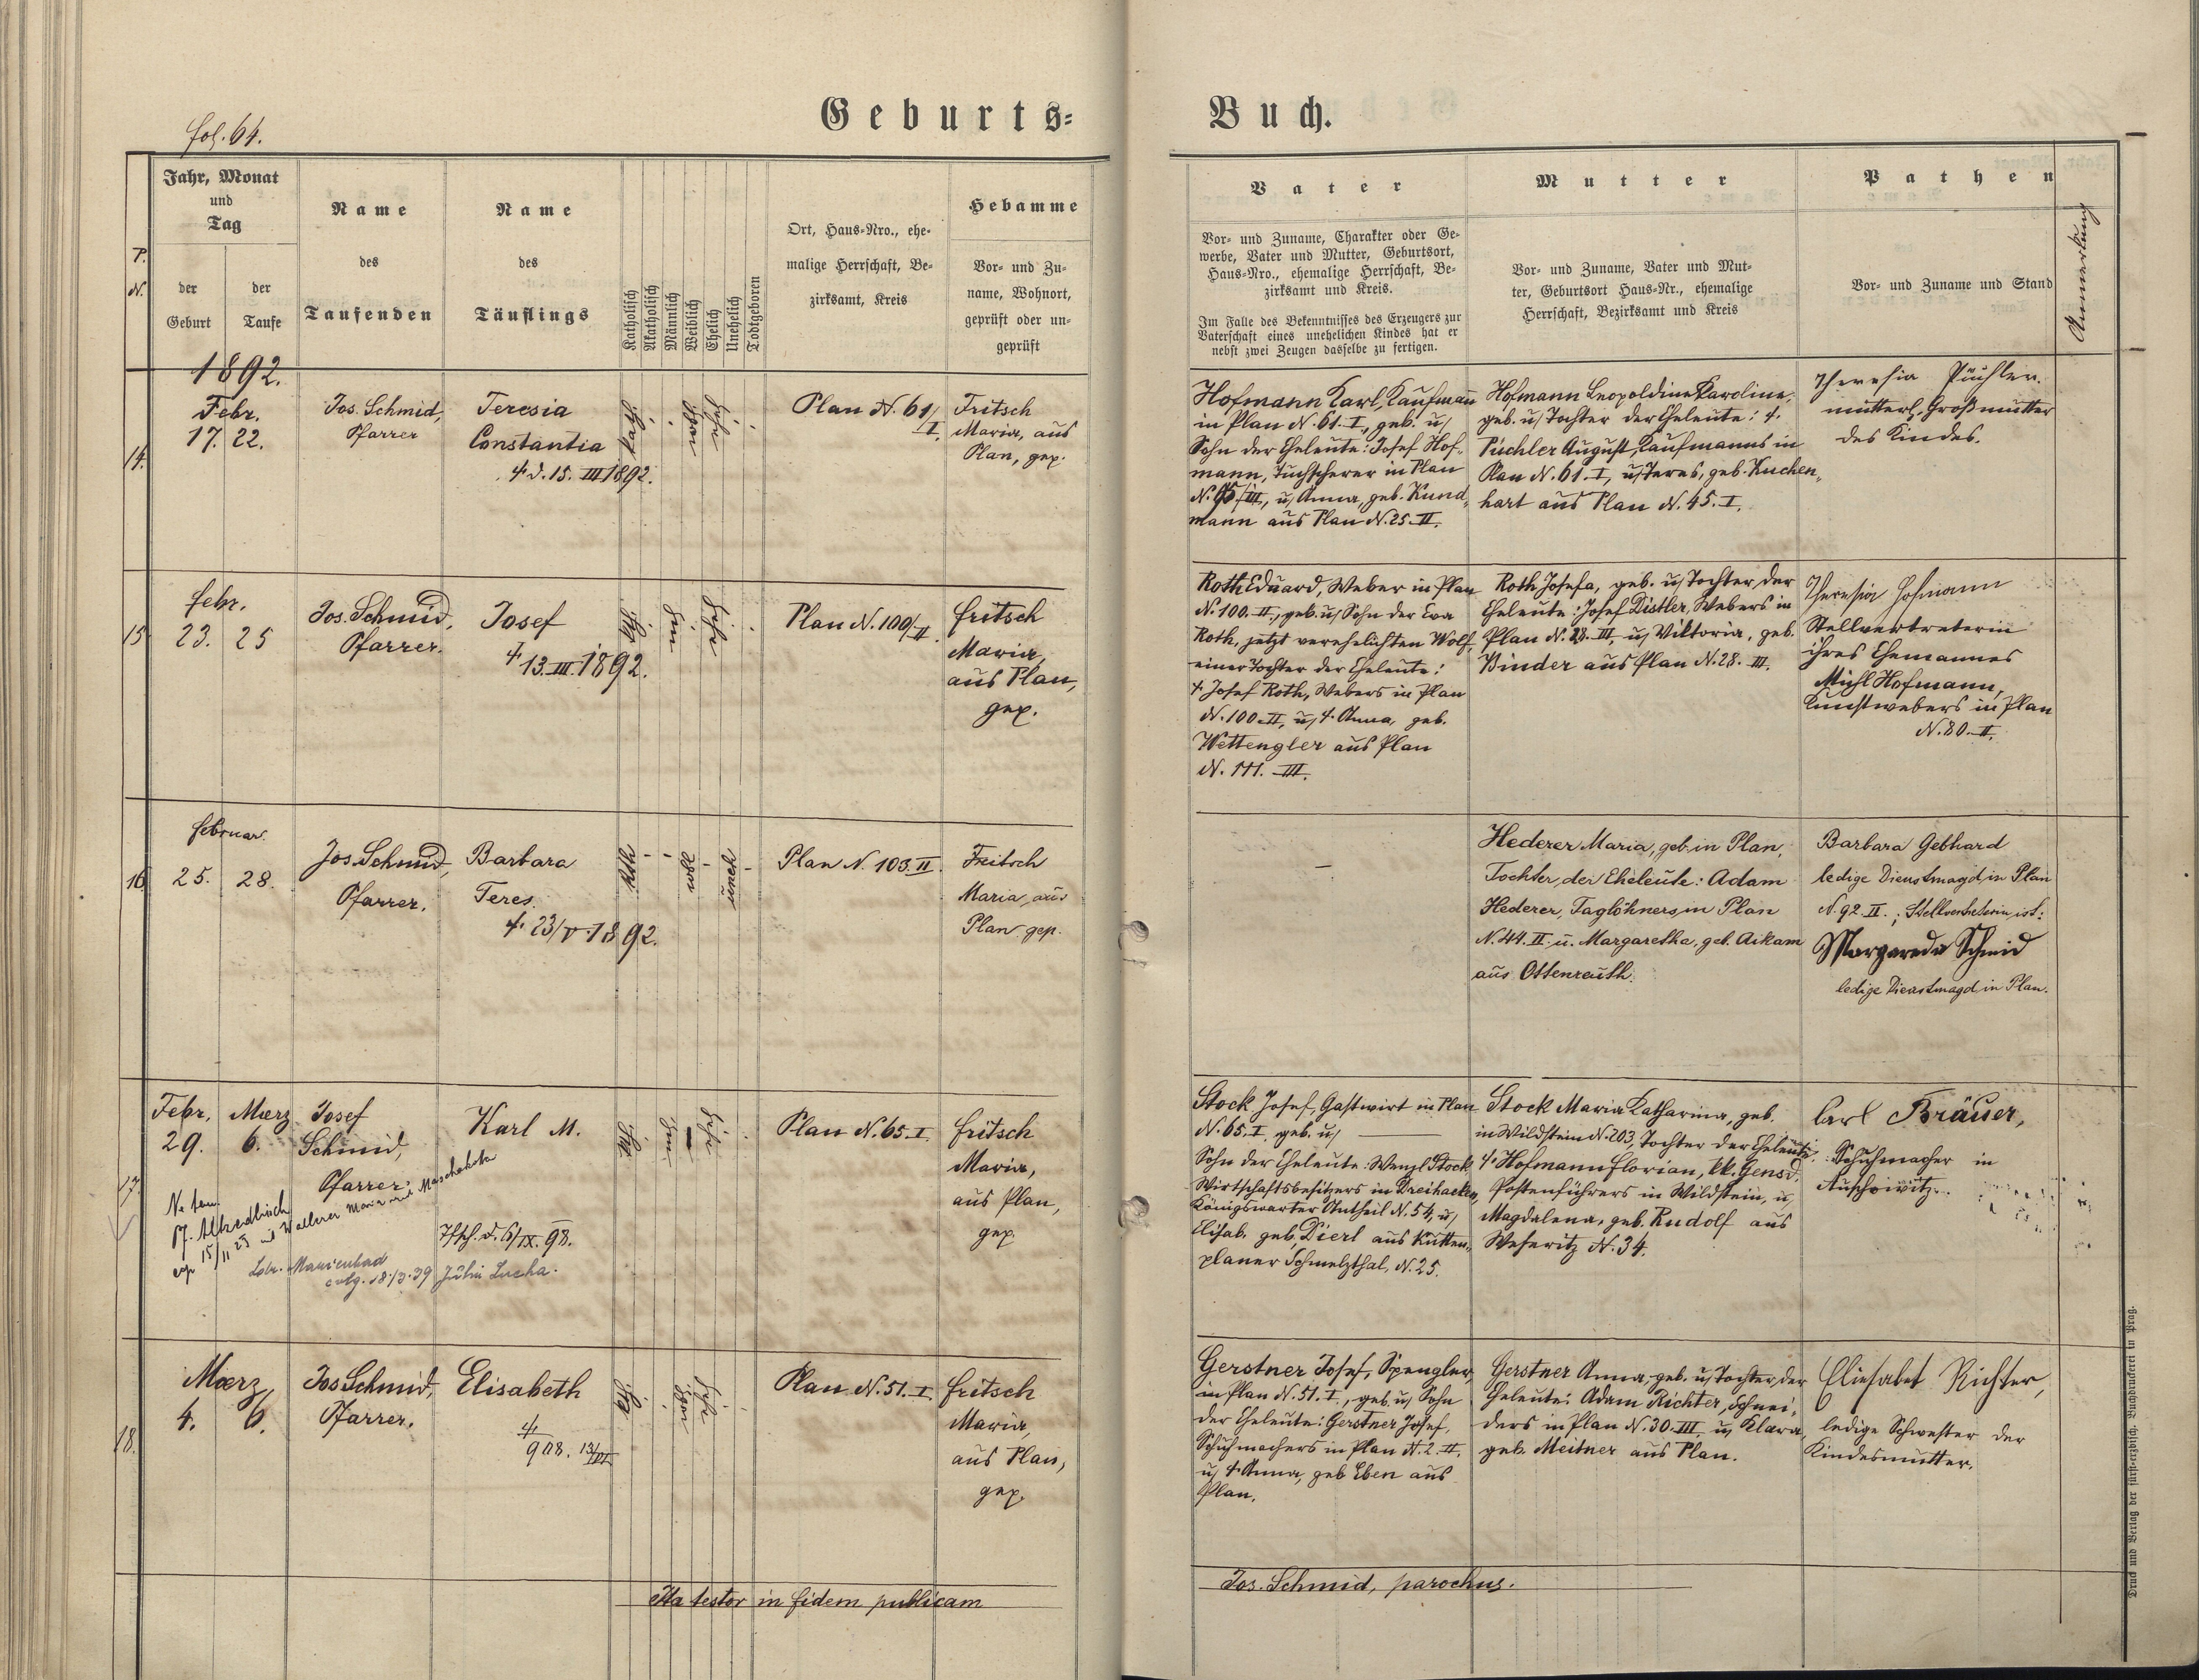 fol. 64.
Geburts-
Buch.
P.
N.
Jahr, Monat
und
Tag
der
Geburt
der
Taufe
Name
des
Taufenden
Name
des
Täuflings
Katholisch
Akatholisch
Männlich
Weiblich
Ehelich
Unehelich
Todtgeboren
Ort, Haus-Nro., ehe-
malige Herrschaft, Be-
zirksamt, Kreis
Hebamme
Vor- und Zu-
name, Wohnort,
geprüft oder un-
geprüft
Vater
Vor- und Zuname, Charakter oder Ge-
werbe, Vater und Mutter, Geburtsort,
Haus-Nro., ehemalige Herrschaft, Be-
zirksamt und Kreis.
Im Falle des Bekenntnisses des Erzeugers zur
Vaterschaft eines unehelichen Kindes hat er
nebst zwei Zeugen dasselbe zu fertigen.
Mutter
Vor- und Zuname, Vater und Mut-
ter, Geburtsort Haus-Nr., ehemalige
Herrschaft, Bezirksamt und Kreis
Pathen
Vor- und Zuname und Stand
Anmerkung
1892.
14.
Febr.
17. 22.
Jos. Schmid,
Pfarrer
Teresia
Constantia
†. d. 15. III 1892.
Plan N. 61/
I.
Fritsch
Maria, aus
Plan, gep.
Hofmann Karl, Kaufmann
in Plan N. 61. I, geb. u/
Sohn der Eheleute: Josef Hof-
mann, Tuchscherer in Plan
III, u/ Anna, geb. Kund-
mann aus Plan N. 25. II.
Hofmann Leopoldine Karoline,
geb. u/ Tochter der Eheleute: †.
Püchler August, Kaufmanns in
Plan N. 61. I, u/ Teres, geb. Kuchen-
hart aus Plan N. 45. I.
Theresia Püchler
mütterl. Großmutter
des Kindes.
15
Febr.
23. 25
Jos. Schmid,
Pfarrer.
Josef
†. 13. III. 1892.
Plan N. 100/II
Fritsch
Maria,
aus Plan,
gep.
Roth Eduard, Weber in Plan
N. 100. II, geb. u/ Sohn der Eva
Roth, jetzt verehelichten Wolf,
einer Tochter der Eheleute:
†. Josef Roth, Webers in Plan
N. 100. II, u/ †. Anna, geb.
Wettengler aus Plan
N. 111. III.
Roth Josefa, geb. u/ Tochter der
Eheleute: Josef Distler, Webers in
Plan N. 28. III, u/ Viktoria, geb.
Binder aus Plan N. 28. III.
Theresia Hofmann
Stellvertreterin
ihres Ehemannes
Michl Hofmann,
Kunstwebers in Plan
N. 80. II.
16
Februar.
25. 28.
Jos. Schmid,
Pfarrer.
Barbara
Teres.
†. 23/V. 1892.
Kth
uneh
Plan N. 103. II.
Fritsch
Maria, aus
Plan gep.
Hederer Maria, geb. in Plan,
Tochter, der Eheleute: Adam
Hederer, Taglöhners, in Plan
N. 44. II. u. Margaretha, geb. Aikam
aus Ottenreuth.
Barbara Gebhard
ledige Dienstmagd, in Plan
N. 92. II.; Stellvertreterin ist:
Margareda Schmid
ledige Dienstmagd in Plan.
17.
Febr. Maerz
29. 6.
Josef
Schmid,
Pfarrer.
Karl M.
15/11 25
Marienbad
18.13.39
d. 6/IX. 98.
Plan N. 65. I
Fritsch
Maria,
aus Plan,
gep.
Stock Josef, Gastwirt in Plan
N. 65. I, geb. u/
Sohn der Eheleute: Wenzl Stock
Wirtschaftsbesitzers in Dreihacken,
Königswarter Antheil N. 54, u/
Elisab. geb. Dierl aus Kutten-
planer Schmelzthal, N. 25.
Stock Maria Katharina, geb.
in Wildstein N. 203, Tochter der Eheleute:
†. Hofmann Florian, kk. Gensd.
Postenführers in Wildstein, u/
Magdalena, geb. Rudolf aus
Weseritz N. 34.
Carl Bräuer,
Schuhmacher in
Auschowitz.
18.
Maerz
4. 6.
Jos Schmid,
Pfarrer.
Elisabeth
†.
Plan N. 51. I
Fritsch
Maria,
aus Plan,
gep.
Gerstner Josef, Spengler
in Plan N. 51. I, geb. u/ Sohn
der Eheleute: Gerstner Josef,
Schuhmachers in Plan N. 2. II,
u/ †. Anna, geb Eben aus
Plan.
Gerstner Anna, geb. u/ Tochter der
Eheleute: Adam Richter, Schnei-
ders in Plan N. 30. III, u/ Klara,
geb. Meitner aus Plan.
Eliesabet Richter,
ledige Schwester der
Kindesmutter.
Ita testor in fidem publicam
Jos. Schmid, parochus.
Druck und Verlag der fürst-erzbisch. Buchdruckerei in Prag.